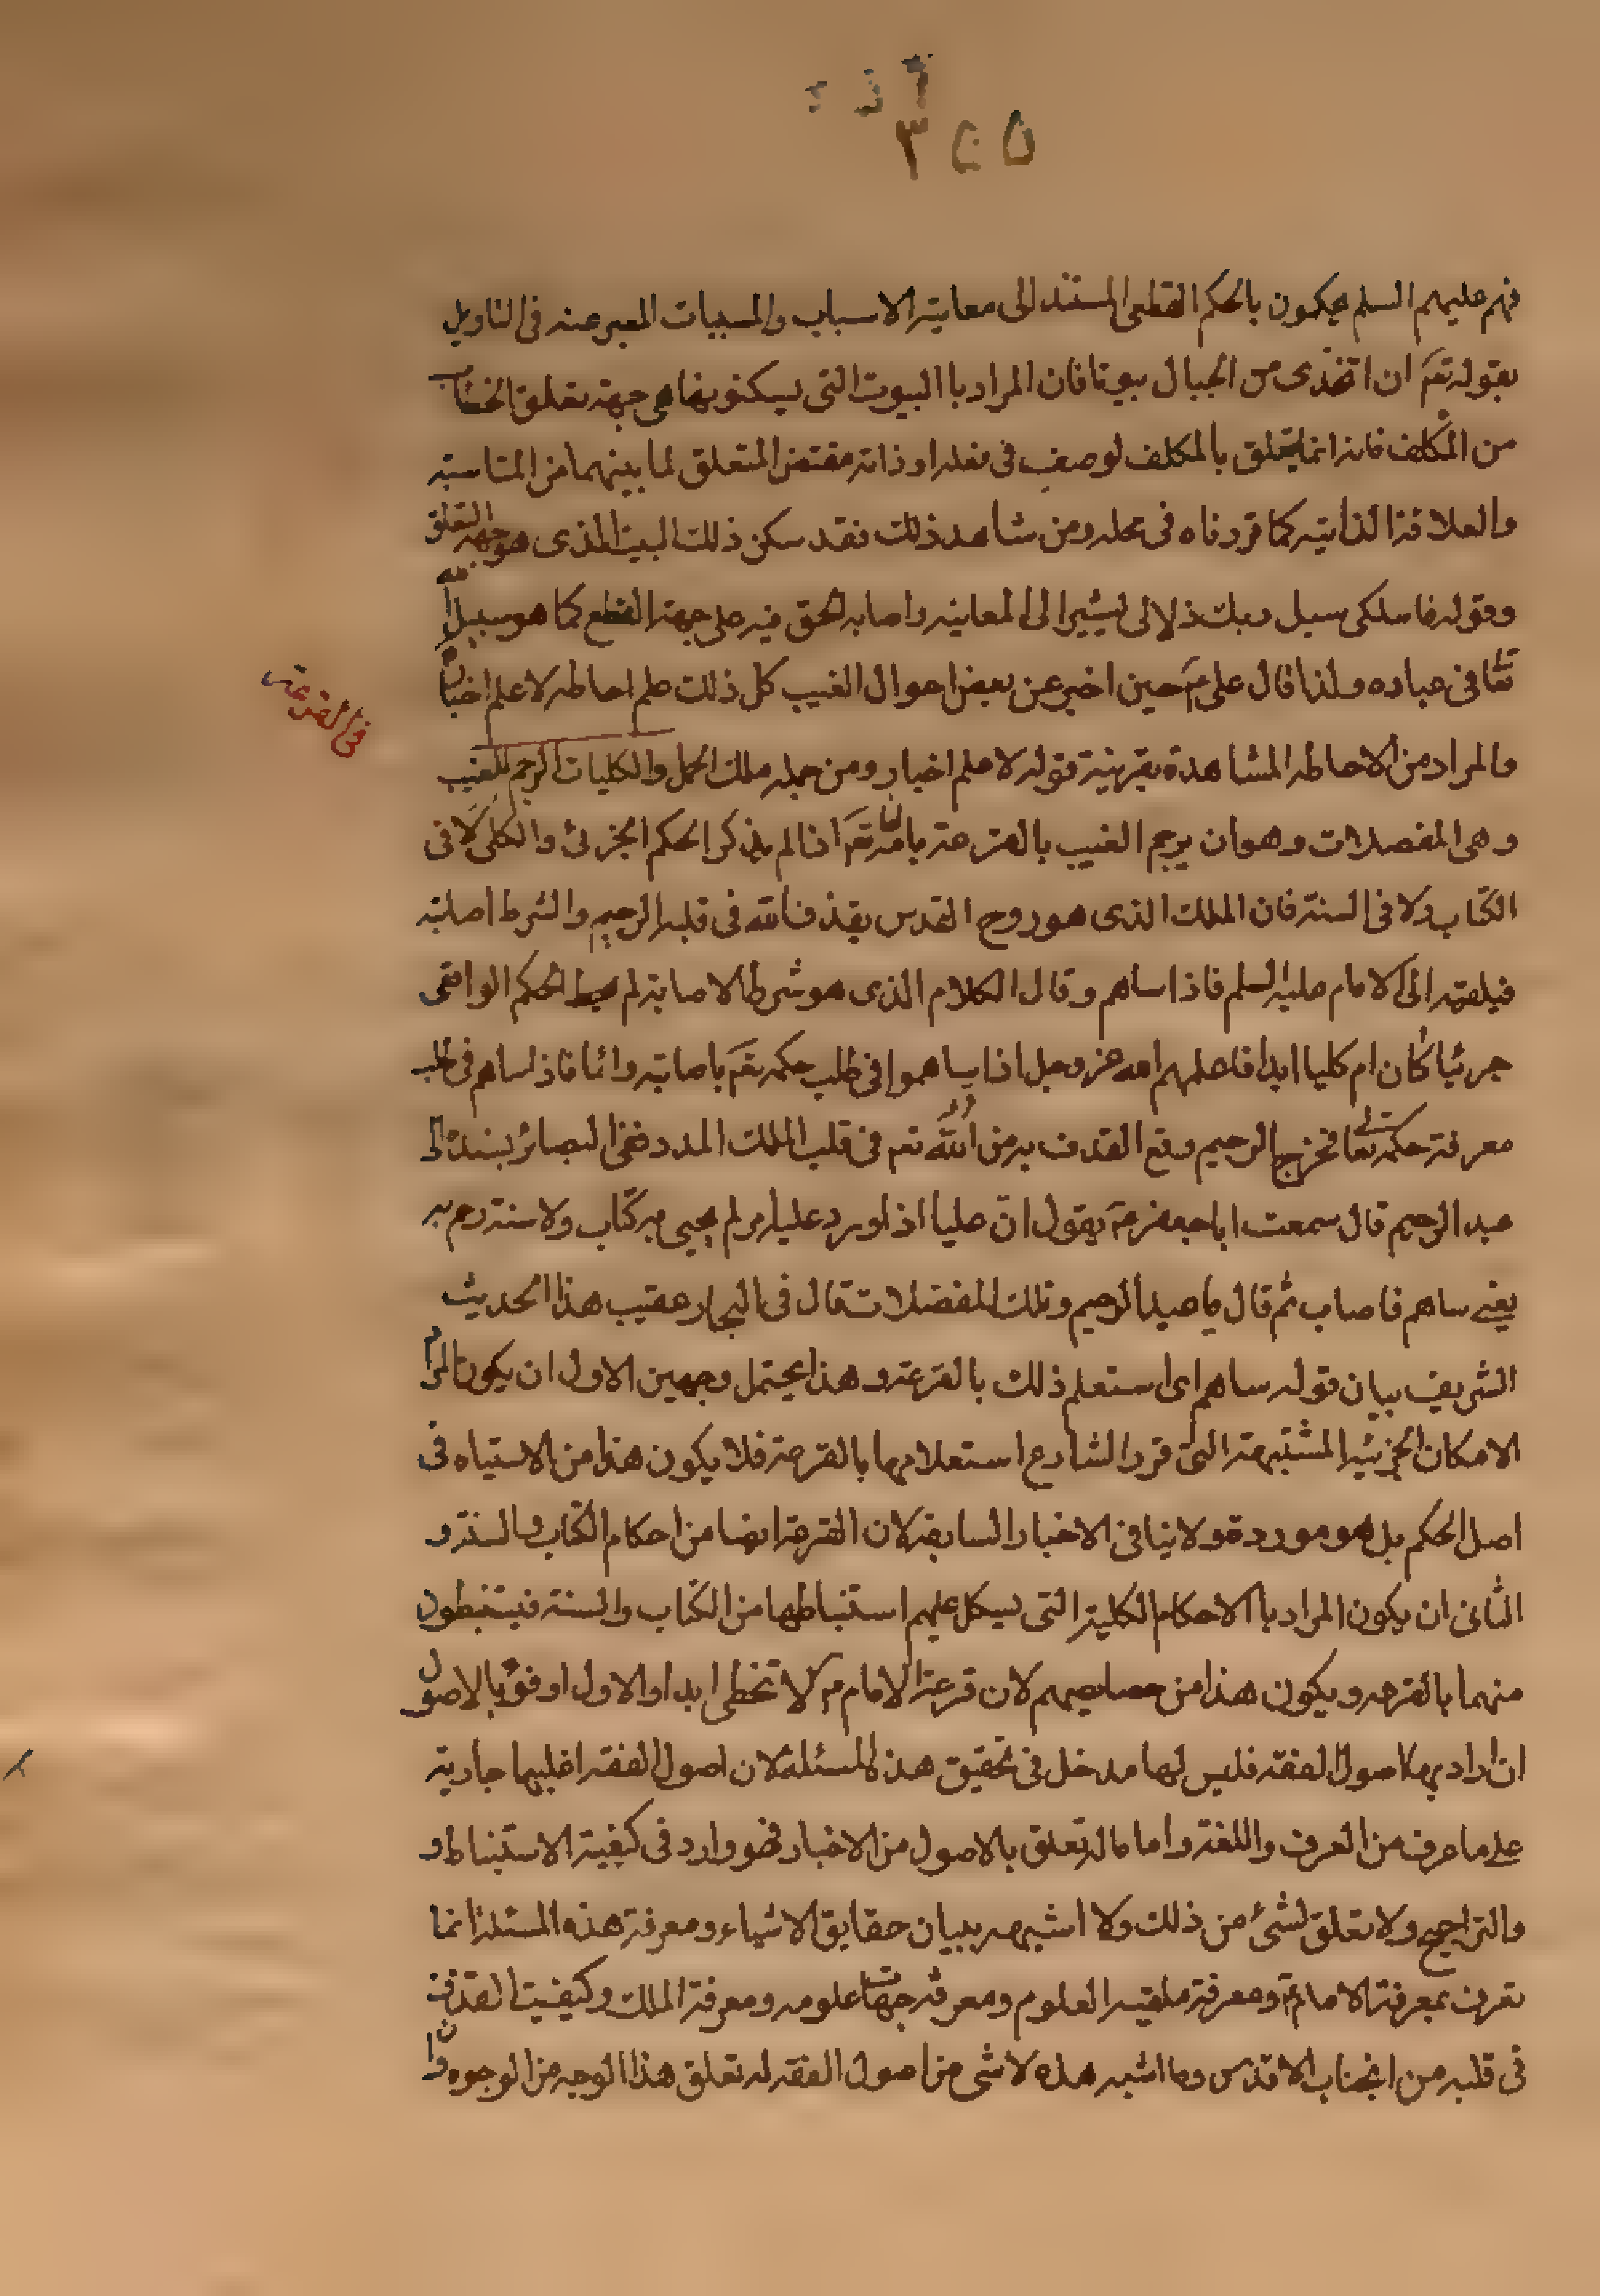 ٣٢٥
فهم عليهم السلم يحكمون بالحكم القطعى المستند الى معاينة الاسباب والمسببات المعبر عنه فى التاويل
بقوله تعَ ان اتخذى من الجبال بيوتا فان المراد با البيوت التى يسكنونها هى جهة تعلق الخطاب
من المكلِف فانه انما يتعلق بالمكلف لوصف فى فعله او ذاته مقتض المتعلق لما بينهما من المناسبة
والعلاقة الذاتية كما قررناه فى محله ومن شاهد ذلك فقد سكن ذلك البيت الذى هو جهة التعلق
وقوله فاسلكى سبل ربك ذللا يشير الى المعاينه واصابه الحق فيه على جهة القطع كما هو سبيل الله
تعا فى عباده ولذا قال على مَ حين اخبر عن بعض احوال الغيب كل ذلك علم احاطه لا علم اخبار
فى القرعة
والمراد من الاحاطه المشاهدة بقرينة قوله لا علم اخبار ومن جمله ملك الجمل والكليات الرجم للغيب
وهى المفصلات وهو ان يرجم الغيب بالقرعة باذن الله تعَ اذا لم يذكر الحكم الجزئى والكلى لا فى
الكتاب ولا فى السنة فان الملك الذى هو روح القدس يقذف الله فى قلبه الرجيم والشرط اصابة
فيلقيه الى الامام عليه السلم فاذا ساهم وقال الكلام الذى هو شرط الاصابة لم يخط الحكم الواقعى
جرئيا كان ام كليا ابدا فاعلمهم الله عز وجل اذا ساهموا فى طلب حكمه تعَ باصابة دائما فاذا ساهم فى طلب
معرفة حكمه تعا فخرج الرجيم وقع القذف به من الله تعم فى قلب الملك المدد ففى البصائر بسنده الى
عبد الرحيم قال سمعت ابا جعفر مَ يقول انّ عليا اذا ورد عليه امر لم يجىء به كتاب ولا سنة رجم به
يعنى ساهم فاصاب ثم قال يا عبد الرحيم وتلك المفضلات قال فى البحار عقيب هذا الحديث
الشريف بيان قوله ساهم اى استعلم ذلك بالقرعة وهذا يحتمل وجهين الاول ان يكون المراد
الامكان الجزئية المشتبهة التى قرر الشارع استعلامها بالقرعة فلا يكون هذا من الاشتباه فى
اصل الحكم بل هو مورده ولا ينافى الاخبار السابقة لان القرعة ايضا من احكام الكتاب والسنة و
الثانى ان يكون المراد با الاحكام الكلية التى يشكل عليهم استنباطها من الكتاب والسنة فيستنبطون
منهما بالقرعه ويكون هذا من خصايصهم لان قرعة الامام مَ لا تخطى ابدا والاول اوفق بالاصول
ان اراد بها اصول الفقه فليس لها مدخل فى تحقيق هذه المسئلة لان اصول الفقه اغلبها جارية
على ما عرف من العرف واللغة واما ما له تعلق بالاصول من الاخبار فهو وارد فى كيفية الاستنباط و
والتراجيح ولا تعلق لشئ من ذلك ولا اشبهه ببيان حقايق الاشياء ومعرفة هذه المسئلة انما
تعرف بمعرفة الامام مَ ومعرفة ملقيه العلوم ومعرفة جهات علومه ومعرفة الملك وكيفيت القذف
فى قلبه من الجناب الاقدس وما اشبه هذه لا شى من اصول الفقه له تعلق هذا الوجه من الوجوه وان